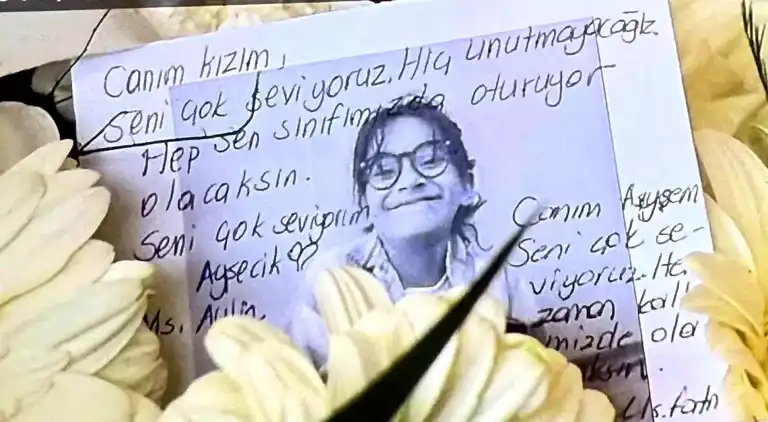 Canım kızım,
Seni çok seviyoruz. Hiç unutmayacağız.
Hep sen sınıfımızda oturuyor
olacaksın.
Seni çok seviyorum
Ayşecik ♡
Ms.
Canım Ayşem
Seni çok se-
viyoruz. He
zaman kal
mizde ola
ksın.